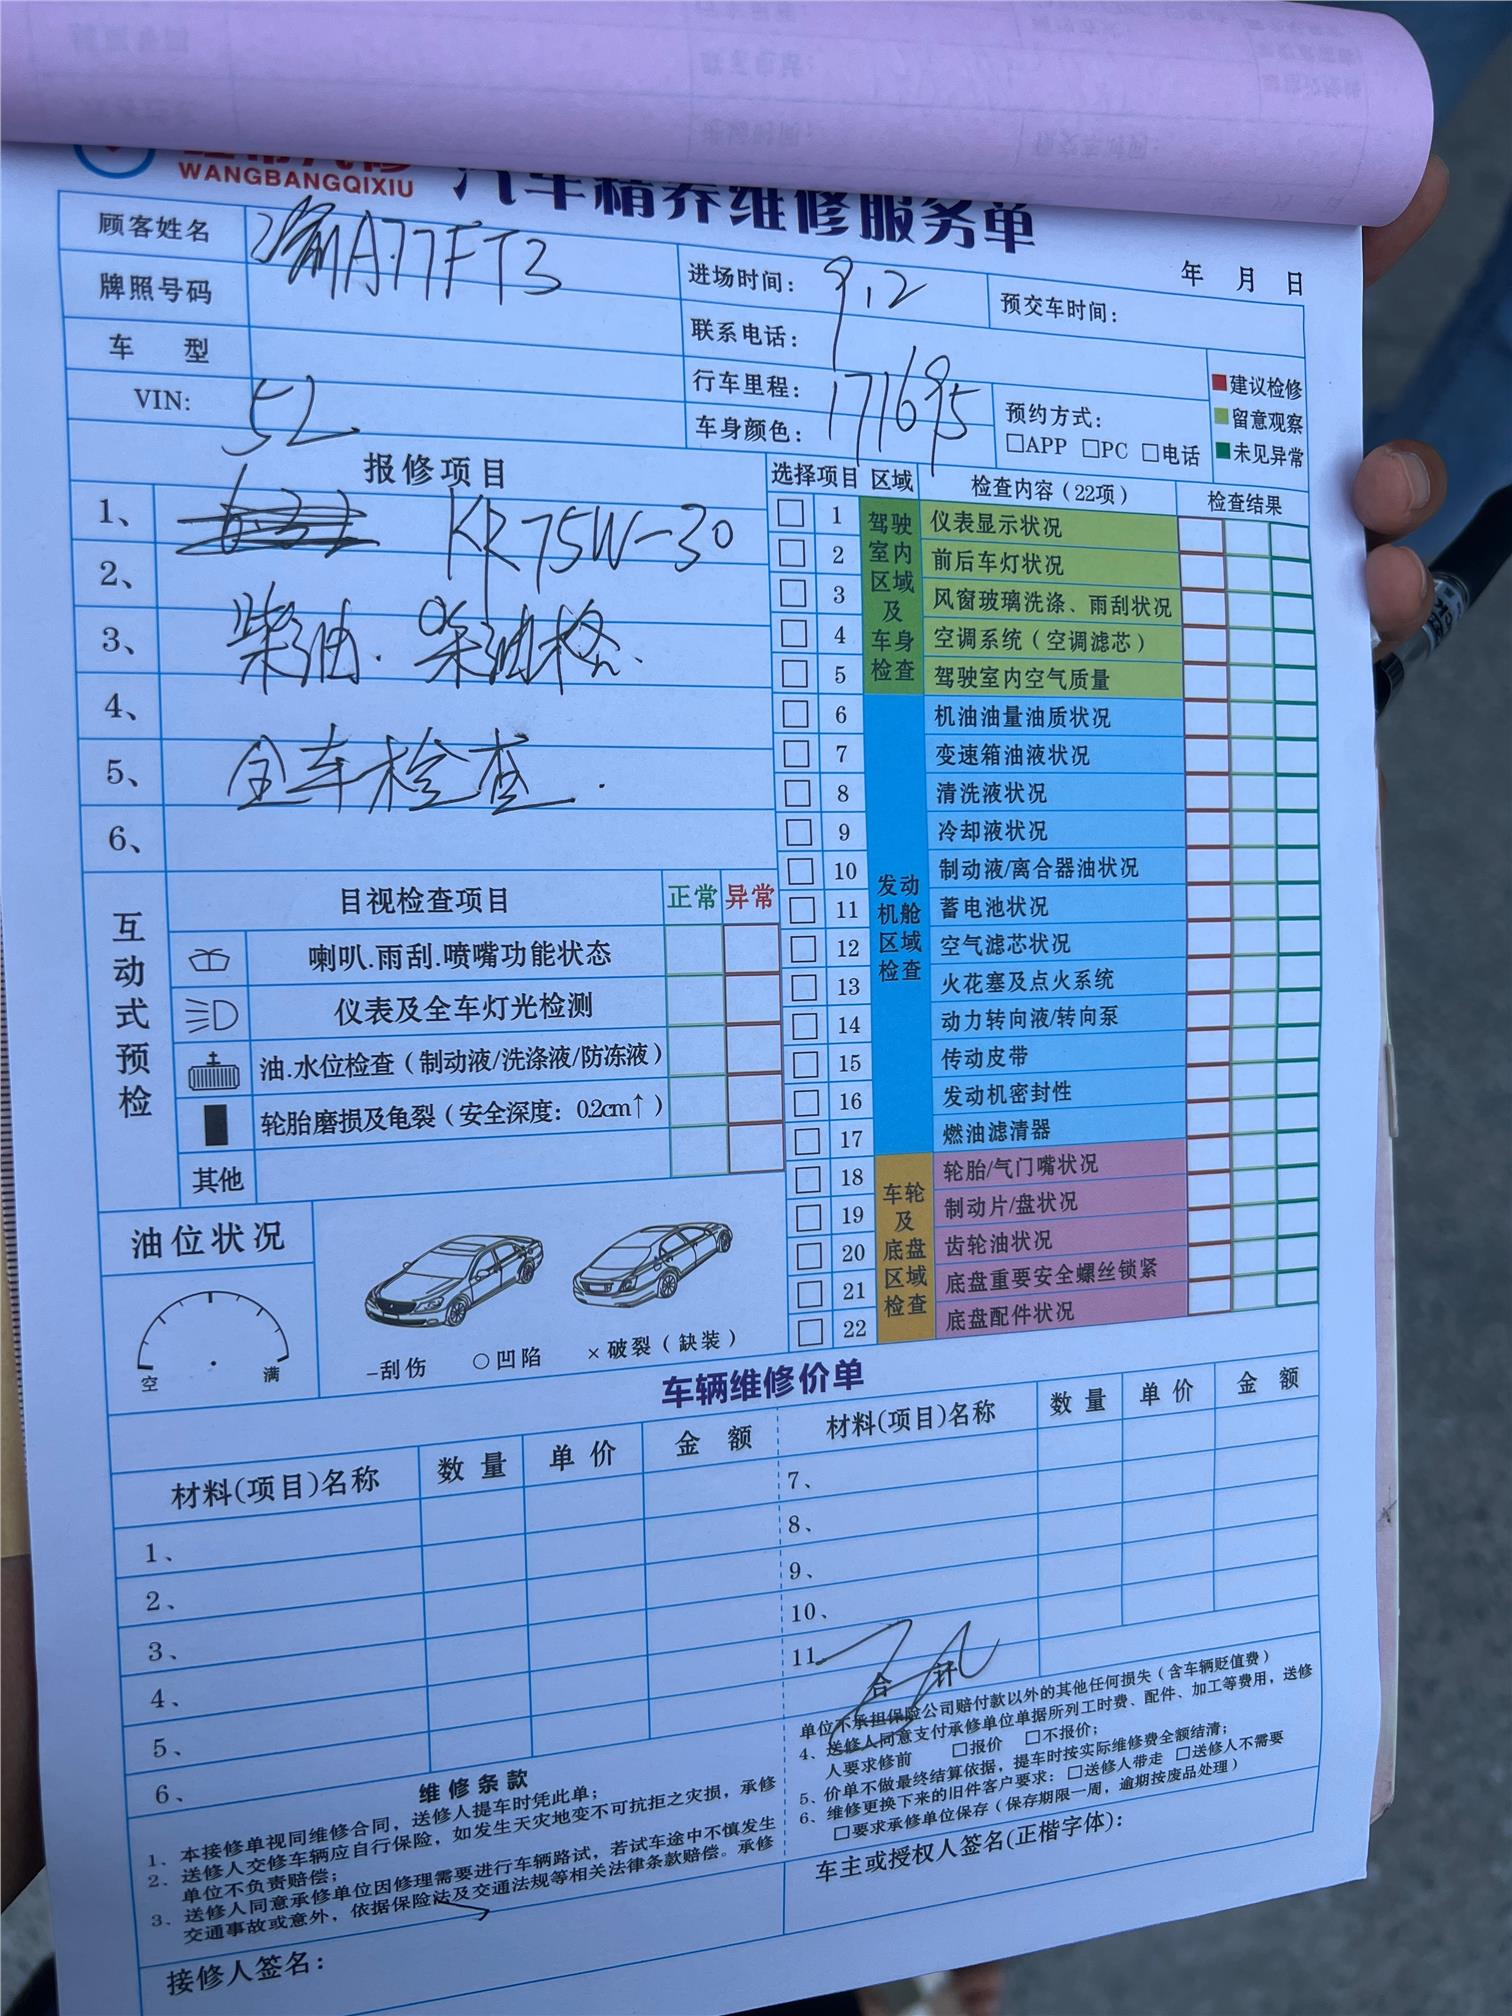 WANGBANGQIXIU
汽车精养维修服务单
年 月 日
顾客姓名 渝A77FT3 进场时间: 9.2 预交车时间:
牌照号码 联系电话:
车 型 行车里程: 171695 预约方式:
□APP □PC □电话
VIN: 5L 车身颜色:
建议检修
留意观察
未见异常
报修项目
1、 KR75W-30
2、
3、 柴油. 柴油格.
4、
5、 全车检查.
6、
选择项目 区域 检查内容(22项) 检查结果
驾驶室内区域及车身检查
1 仪表显示状况
2 前后车灯状况
3 风窗玻璃洗涤、雨刮状况
4 空调系统(空调滤芯)
5 驾驶室内空气质量
发动机舱区域检查
6 机油油量油质状况
7 变速箱油液状况
8 清洗液状况
9 冷却液状况
10 制动液/离合器油状况
11 蓄电池状况
12 空气滤芯状况
13 火花塞及点火系统
14 动力转向液/转向泵
15 传动皮带
16 发动机密封性
17 燃油滤清器
车轮及底盘区域检查
18 轮胎/气门嘴状况
19 制动片/盘状况
20 齿轮油状况
21 底盘重要安全螺丝锁紧
22 底盘配件状况
互动式预检
目视检查项目 正常 异常
喇叭.雨刮.喷嘴功能状态
仪表及全车灯光检测
油.水位检查(制动液/洗涤液/防冻液)
轮胎磨损及龟裂(安全深度: 0.2cm↑)
其他
油位状况
空 满
-刮伤 ○凹陷 ×破裂(缺装)
车辆维修价单
材料(项目)名称 数量 单价 金额 材料(项目)名称 数量 单价 金额
1、 7、
2、 8、
3、 9、
4、 10、
5、 11、
6、 合 计
维修条款
1、本接修单视同维修合同,送修人提车时凭此单;
2、送修人交修车辆应自行保险,如发生天灾地变不可抗拒之灾损,承修
单位不负责赔偿;
3、送修人同意承修单位因修理需要进行车辆路试,若试车途中不慎发生
交通事故或意外,依据保险法及交通法规等相关法律条款赔偿。承修
单位不承担保险公司赔付款以外的其他任何损失(含车辆贬值费)
4、送修人同意支付承修单位单据所列工时费、配件、加工等费用,送修
人要求修前 □报价 □不报价;
5、价单不做最终结算依据,提车时按实际维修费全额结清;
6、维修更换下来的旧件客户要求: □送修人带走 □送修人不需要
□要求承修单位保存(保存期限一周,逾期按废品处理)
接修人签名:
车主或授权人签名(正楷字体):